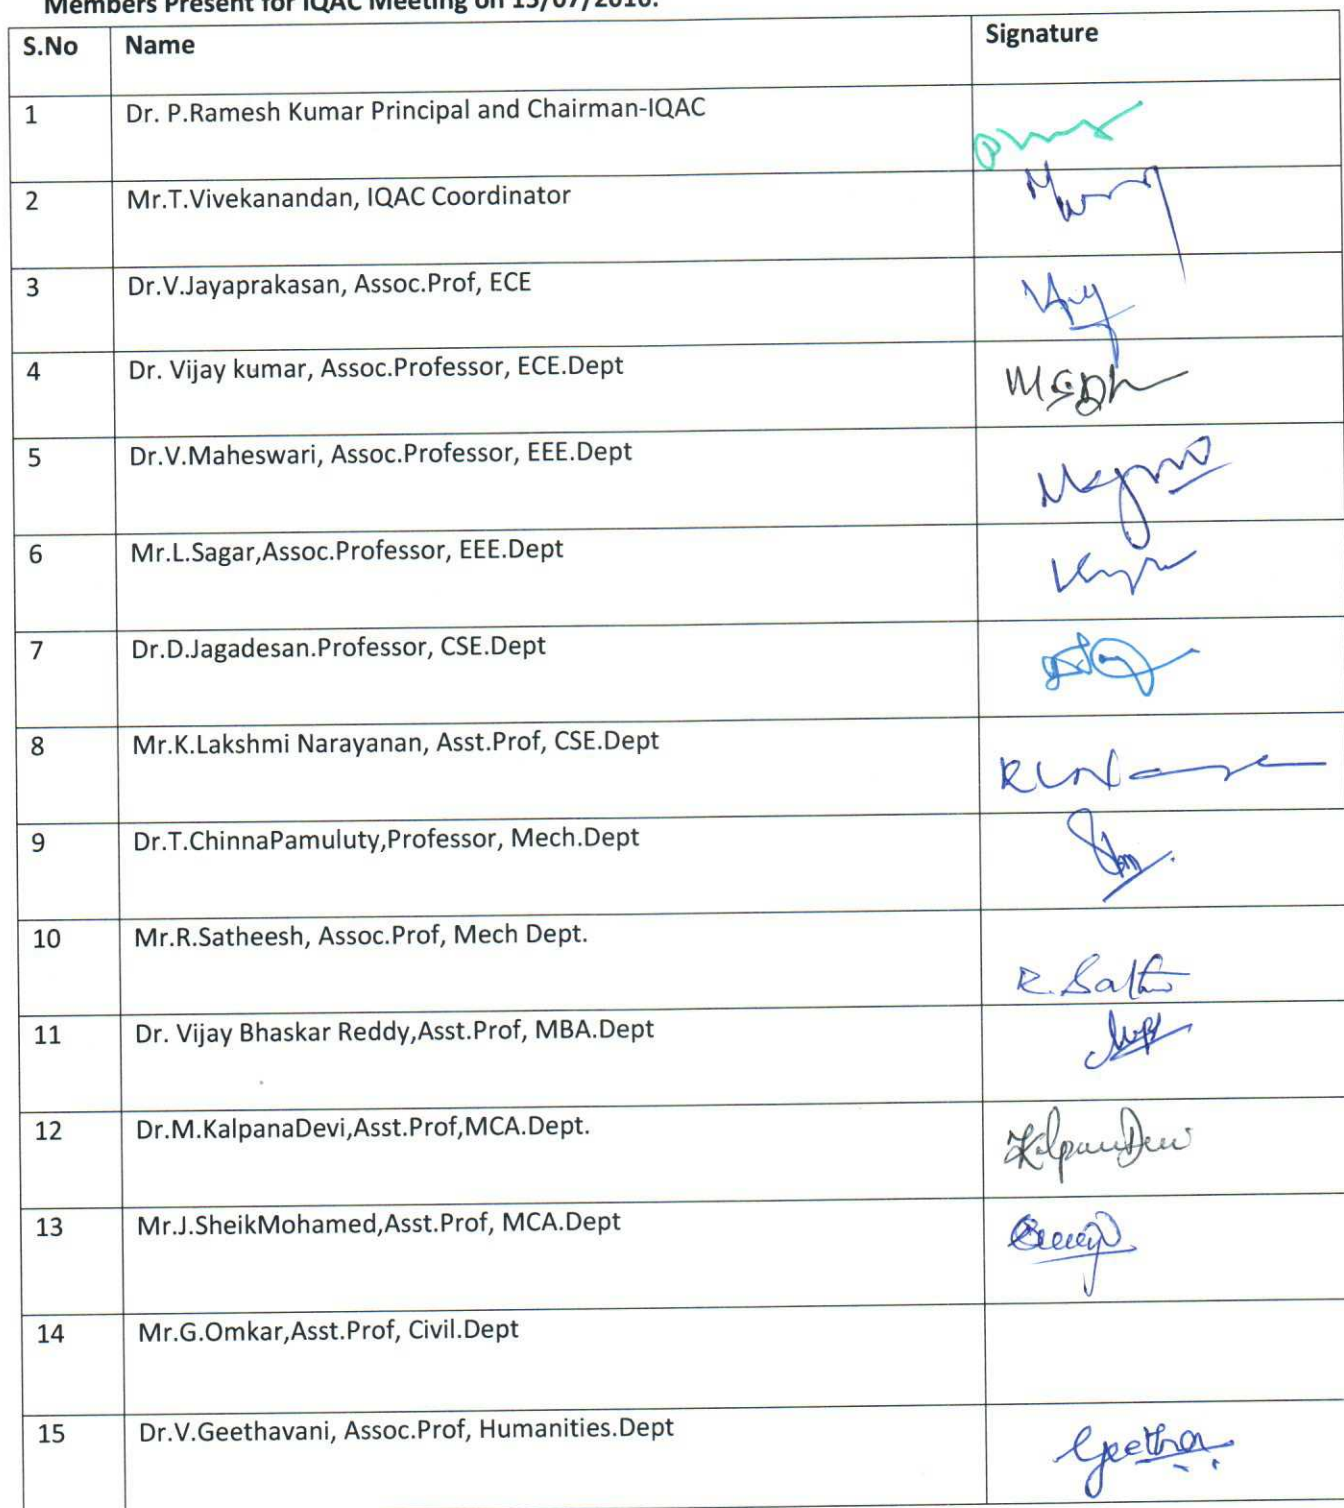 Members Present for IQAC Meeting on 15/07/2016.
S.No Name Signature
1 Dr. P.Ramesh Kumar Principal and Chairman-IQAC
2 Mr.T.Vivekanandan, IQAC Coordinator
3 Dr.V.Jayaprakasan, Assoc.Prof, ECE
4 Dr. Vijay kumar, Assoc.Professor, ECE.Dept
5 Dr.V.Maheswari, Assoc.Professor, EEE.Dept
6 Mr.L.Sagar,Assoc.Professor, EEE.Dept
7 Dr.D.Jagadesan.Professor, CSE.Dept
8 Mr.K.Lakshmi Narayanan, Asst.Prof, CSE.Dept
9 Dr.T.ChinnaPamuluty,Professor, Mech.Dept
10 Mr.R.Satheesh, Assoc.Prof, Mech Dept.
11 Dr. Vijay Bhaskar Reddy,Asst.Prof, MBA.Dept
12 Dr.M.KalpanaDevi,Asst.Prof,MCA.Dept. KalpanaDevi
13 Mr.J.SheikMohamed,Asst.Prof, MCA.Dept
14 Mr.G.Omkar,Asst.Prof, Civil.Dept
15 Dr.V.Geethavani, Assoc.Prof, Humanities.Dept Geetha